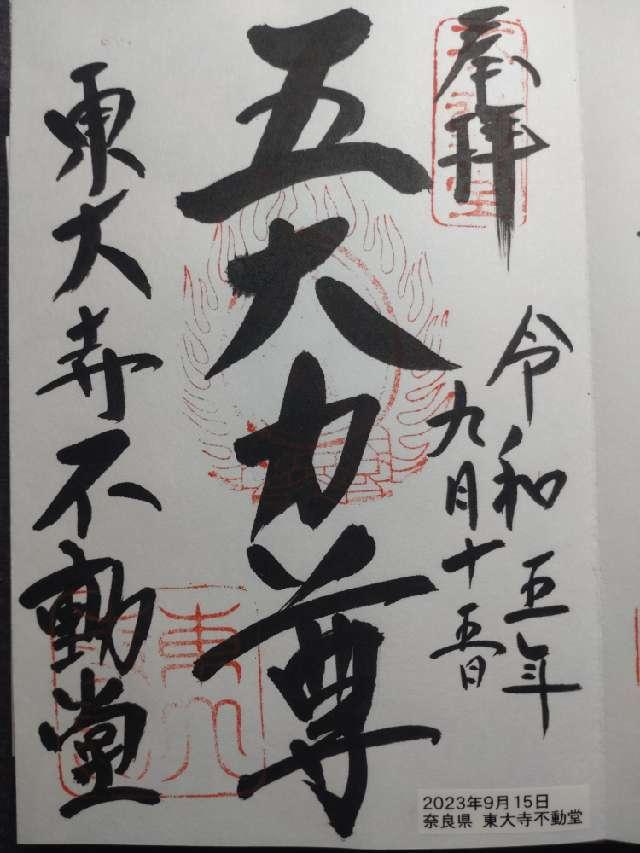 奉拝
令和五年
九月十五日
五大力尊
東大寺不動堂
2023年9月15日
奈良県 東大寺不動堂